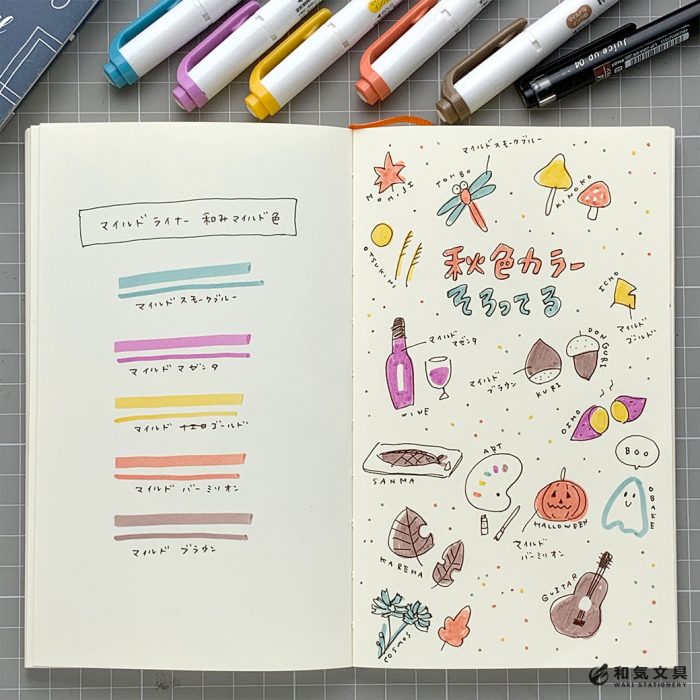 Juice up 04
マイルドライナー 和みマイルド色
マイルド スモークブルー
マイルド マゼンタ
マイルド ゴールド
マイルド バーミリオン
マイルド ブラウン
マイルドスモークブルー
MOMIJI
TONBO
KINOKO
OTSUKIMI
秋色カラー
そろってる
ICHO
マイルド
ゴールド
マイルド
マゼンタ
WINE
マイルド
ブラウン
KURI
DONGURI
OIMO
SANMA
ART
BOO
OBAKE
HALLOWEEN
マイルド
バーミリオン
KAREHA
GUITAR
COSMOS
和気文具
WAKI STATIONERY